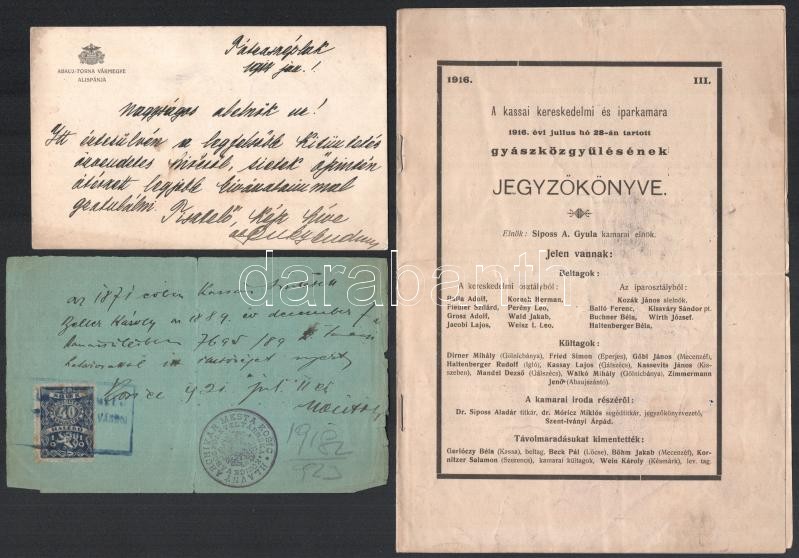 ABAUJ-TORNA VÁRMEGYE
ALISPÁNJA
1914 jan. 1.
Nagyságos elnök úr!
Itt értesülvén a legfelsőbb kitüntetés
örvendetes híréről, sietek őszintén
átérzett legjobb kívánataimmal
gratulálni.
az 1871 évben Kassán született
Zeller Károly az 1889. év december
7695/89
Košice 921 júl 11 én
40
1919
1918
1916. III.
A kassai kereskedelmi és iparkamara
1916. évi julius hó 28-án tartott
gyászközgyülésének
JEGYZŐKÖNYVE.
Elnök: Siposs A. Gyula kamarai elnök.
Jelen vannak:
Beltagok:
A kereskedelmi osztályból: Az iparosztályból:
Balla Adolf, Korach Herman, Kozák János alelnök,
Fiedler Szilárd, Perény Leo, Balló Ferenc, Kisváry Sándor pt.
Grosz Adolf, Wald Jakab, Buchner Béla, Wirth József.
Jacobi Lajos, Weisz I. Leo. Haltenberger Béla,
Kültagok:
Dirner Mihály (Gölnicbánya), Fried Simon (Eperjes), Göbl János (Mecenzéf),
Haltenberger Rudolf (Igló), Kassay Lajos (Gálszécs), Kassevits János (Kis-
szeben), Mandel Dezső (Gálszécs), Walkó Mihály (Gölnicbánya), Zimmermann
Jenő (Abaujszántó).
A kamarai iroda részéről:
Dr. Sipos Aladár titkár, dr. Móricz Miklós segédtitkár, jegyzőkönyvvezető,
Szent-Iványi Árpád.
Távolmaradásukat kimentették:
Garlóczy Béla (Kassa), beltag, Beck Pál (Lőcse), Böhm Jakab (Mecenzéf), Kor-
nitzer Salamon (Szerencs), kamarai kültagok, Wein Károly (Késmárk), lev. tag.
darabanth